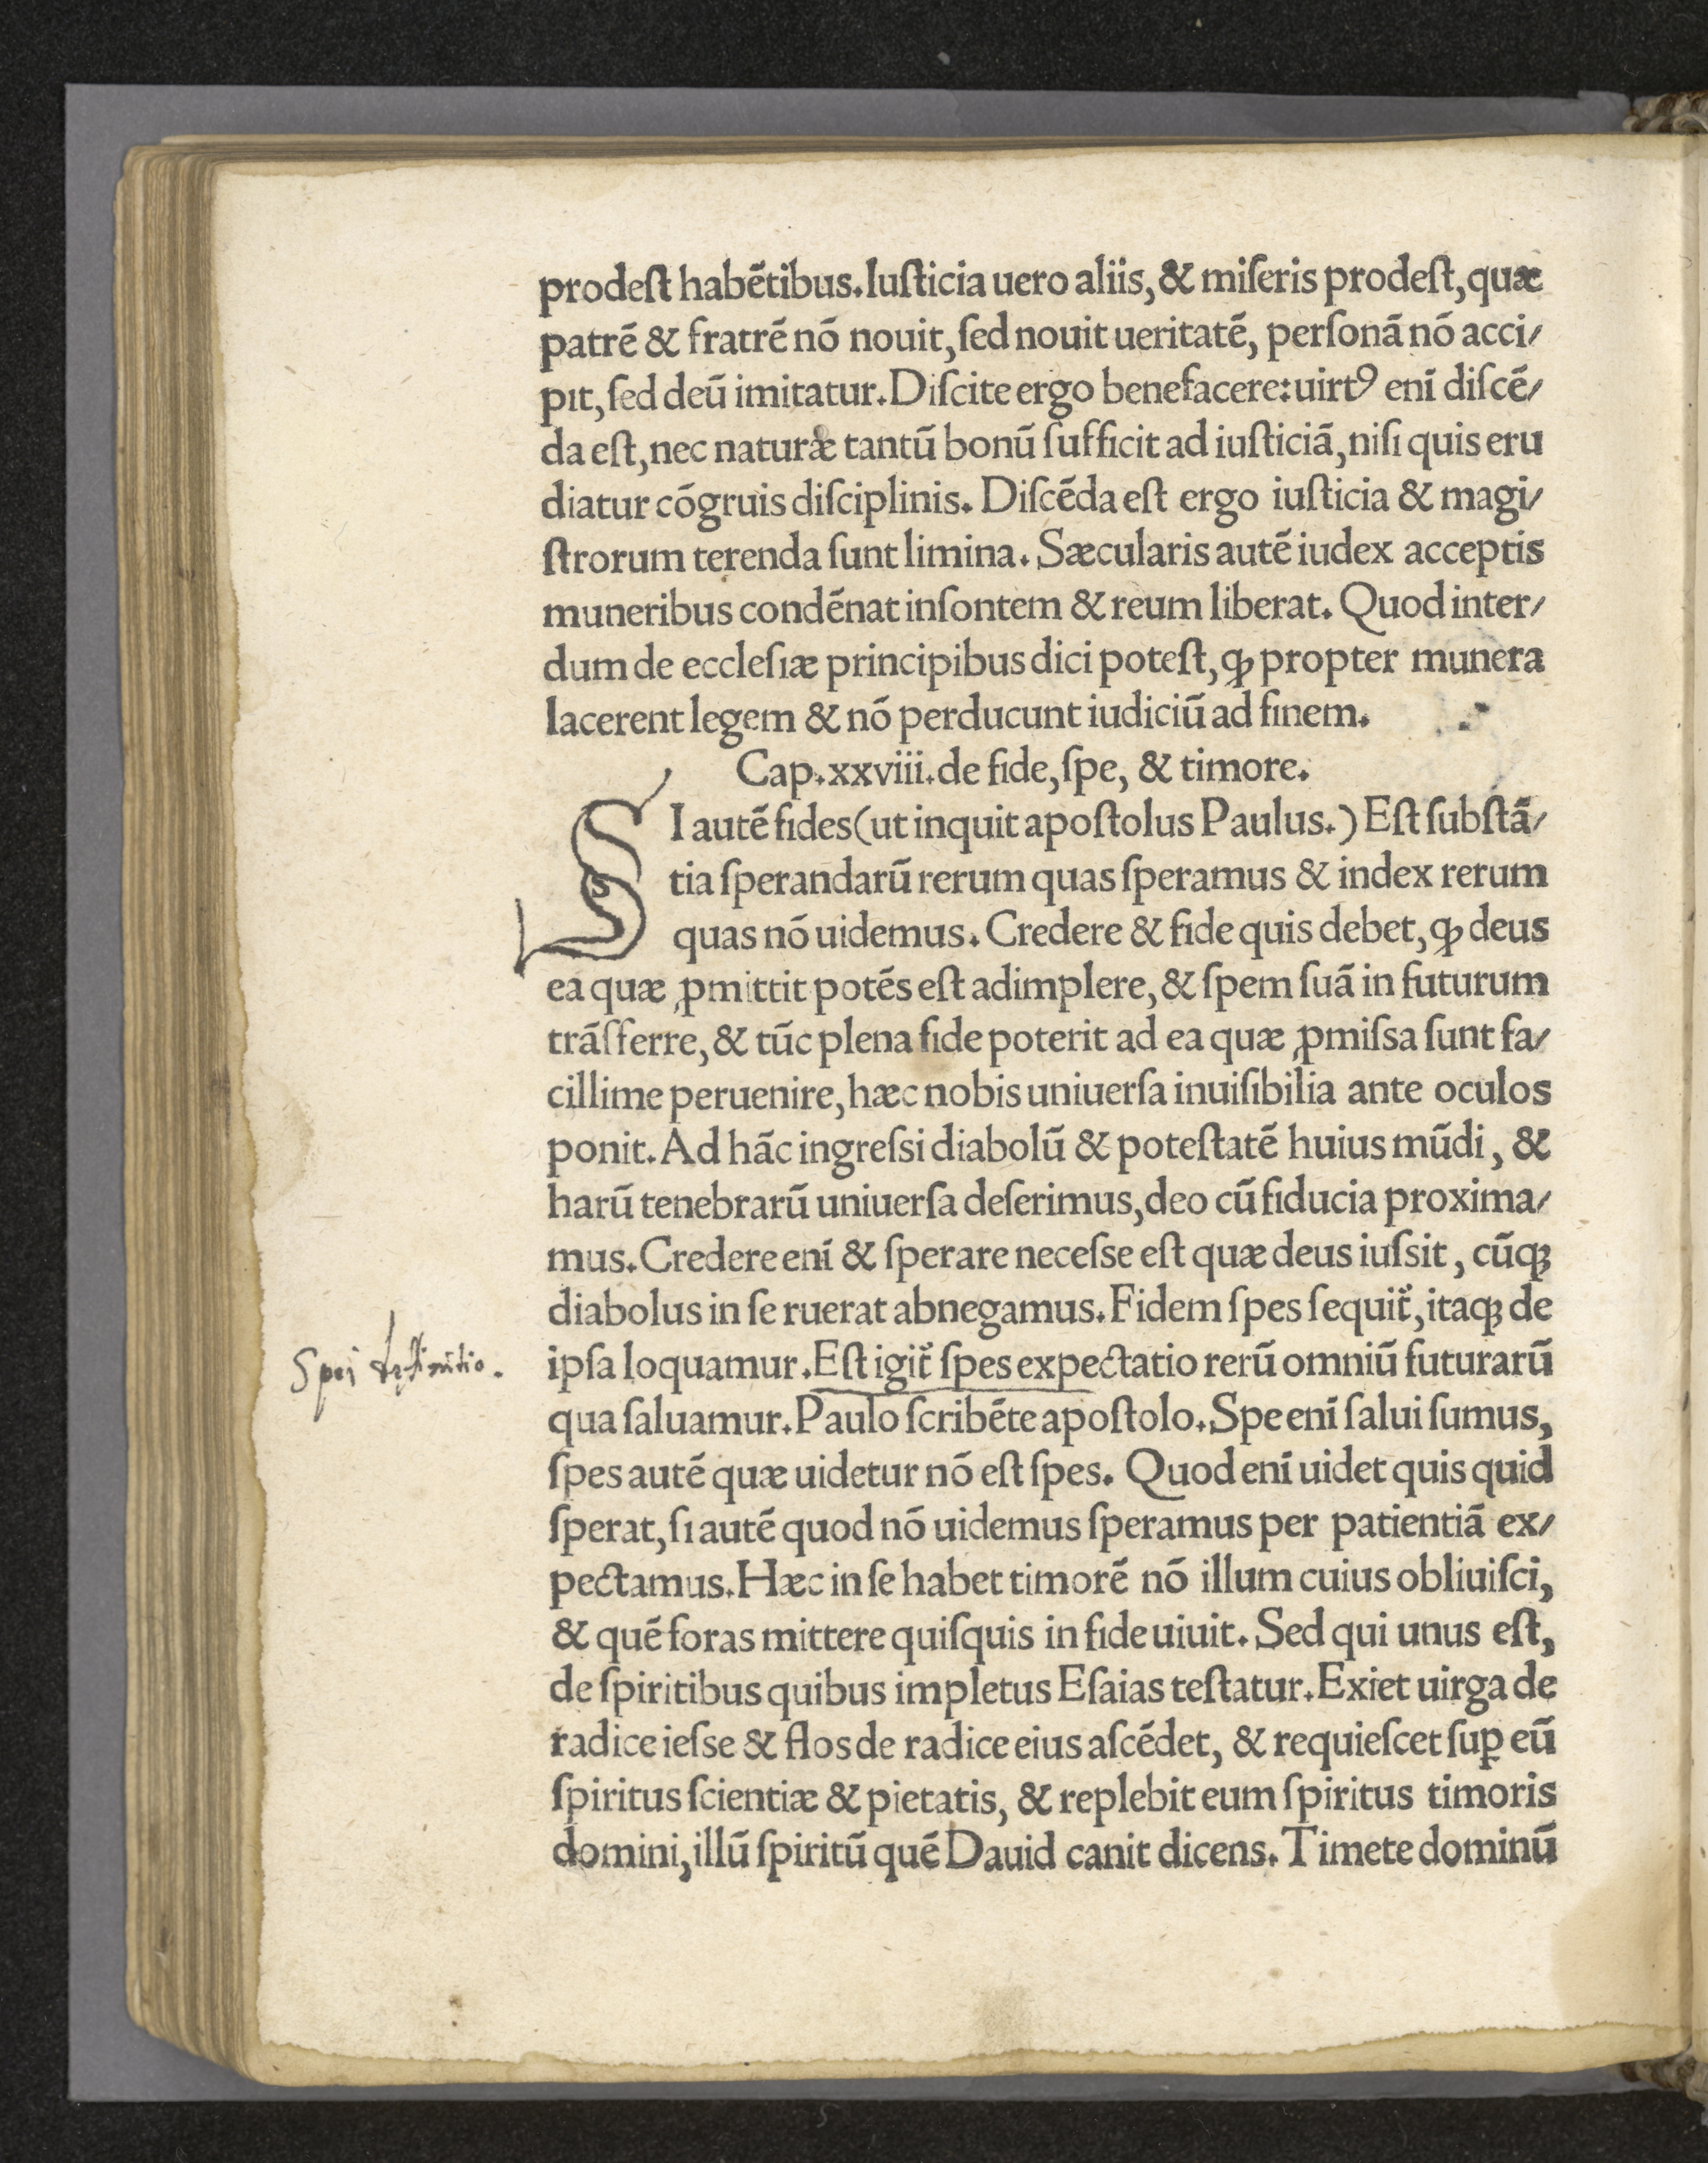 prodeſt habẽtibus. Iuſticia uero aliis, & miſeris prodeſt, quæ
patrẽ & fratrẽ nõ nouit, ſed nouit ueritatẽ, perſonã nõ acci/
pit, ſed deũ imitatur. Diſcite ergo benefacere: uirtꝰ enĩ diſcẽ/
da eſt, nec naturæ tantũ bonũ ſufficit ad iuſticiã, niſi quis eru
diatur cõgruis diſciplinis. Diſcẽda eſt ergo iuſticia & magi/
ſtrorum terenda ſunt limina. Sæcularis autẽ iudex acceptis
muneribus condẽnat inſontem & reum liberat. Quod inter/
dum de eccleſiæ principibus dici poteſt, ꝙ propter munera
lacerent legem & nõ perducunt iudiciũ ad finem.
Cap. xxviii. de fide, ſpe, & timore.
SI autẽ fides (ut inquit apoſtolus Paulus.) Eſt ſubſtã/
tia ſperandarũ rerum quas ſperamus & index rerum
quas nõ uidemus. Credere & fide quis debet, ꝙ deus
ea quæ ꝓmittit potẽs eſt adimplere, & ſpem ſuã in futurum
trãſferre, & tũc plena fide poterit ad ea quæ ꝓmiſsa ſunt fa/
cillime peruenire, hæc nobis uniuerſa inuiſibilia ante oculos
ponit. Ad hãc ingreſsi diabolũ & poteſtatẽ huius mũdi, &
harũ tenebrarũ uniuerſa deſerimus, deo cũ fiducia proxima/
mus. Credere enĩ & ſperare neceſse eſt quæ deus iuſsit, cũqꝫ
diabolus in ſe ruerat abnegamus. Fidem ſpes ſequit̃, itaqꝫ de
Spei definitio.
ipſa loquamur. Eſt igit̃ ſpes expectatio rerũ omniũ futurarũ
qua ſaluamur. Paulo ſcribẽte apoſtolo. Spe enĩ ſalui ſumus,
ſpes autẽ quæ uidetur nõ eſt ſpes. Quod enĩ uidet quis quid
ſperat, ſi autẽ quod nõ uidemus ſperamus per patientiã ex/
pectamus. Hæc in ſe habet timorẽ nõ illum cuius obliuiſci,
& quẽ foras mittere quiſquis in fide uiuit. Sed qui unus eſt,
de ſpiritibus quibus impletus Eſaias teſtatur. Exiet uirga de
radice ieſse & flos de radice eius aſcẽdet, & requieſcet ſuꝑ eũ
ſpiritus ſcientiæ & pietatis, & replebit eum ſpiritus timoris
domini, illũ ſpiritũ quẽ Dauid canit dicens. Timete dominũ